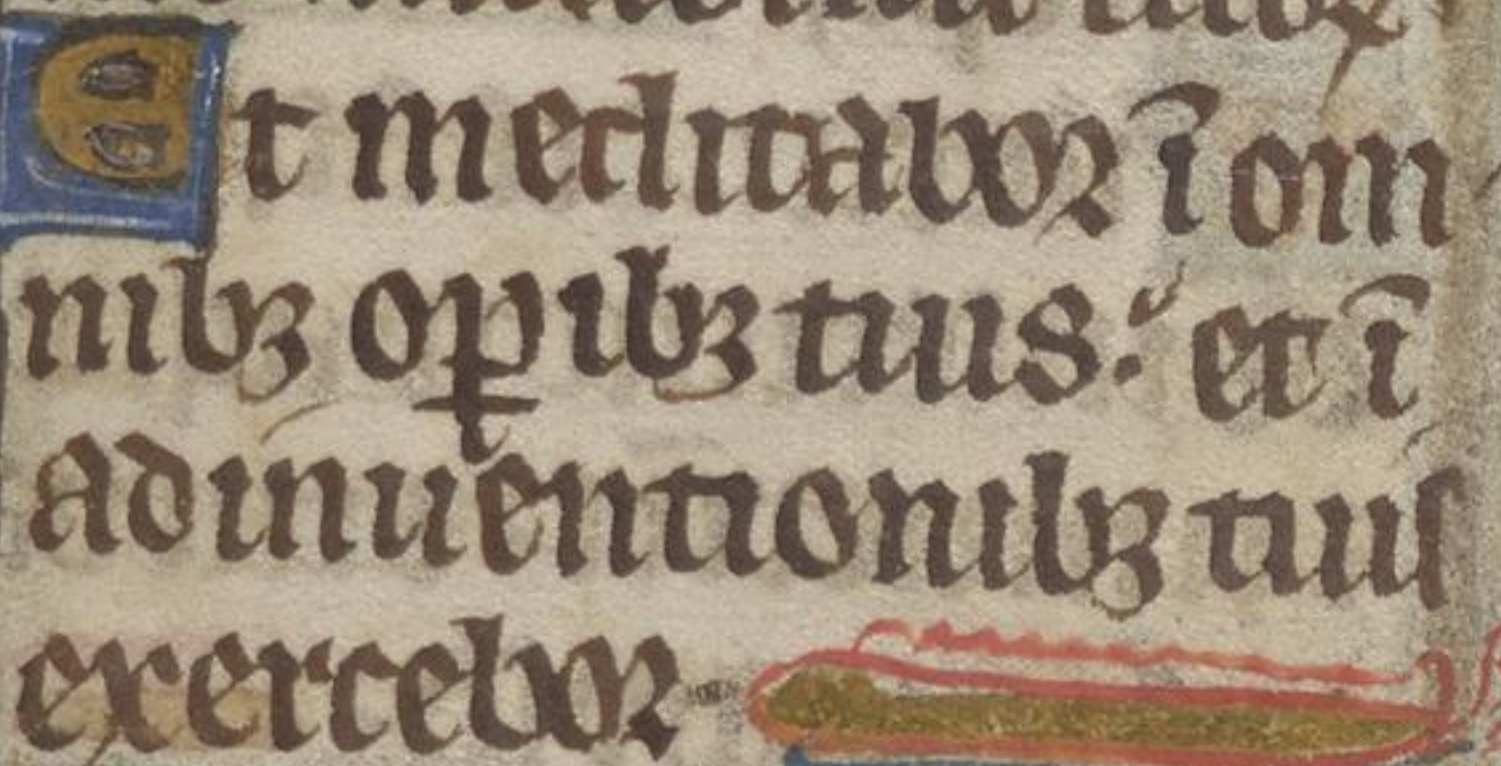 Et meditabor ī om
nibꝫ oꝑibꝫ tuis: et ī
adinuentionibꝫ tuiſ
exercebor